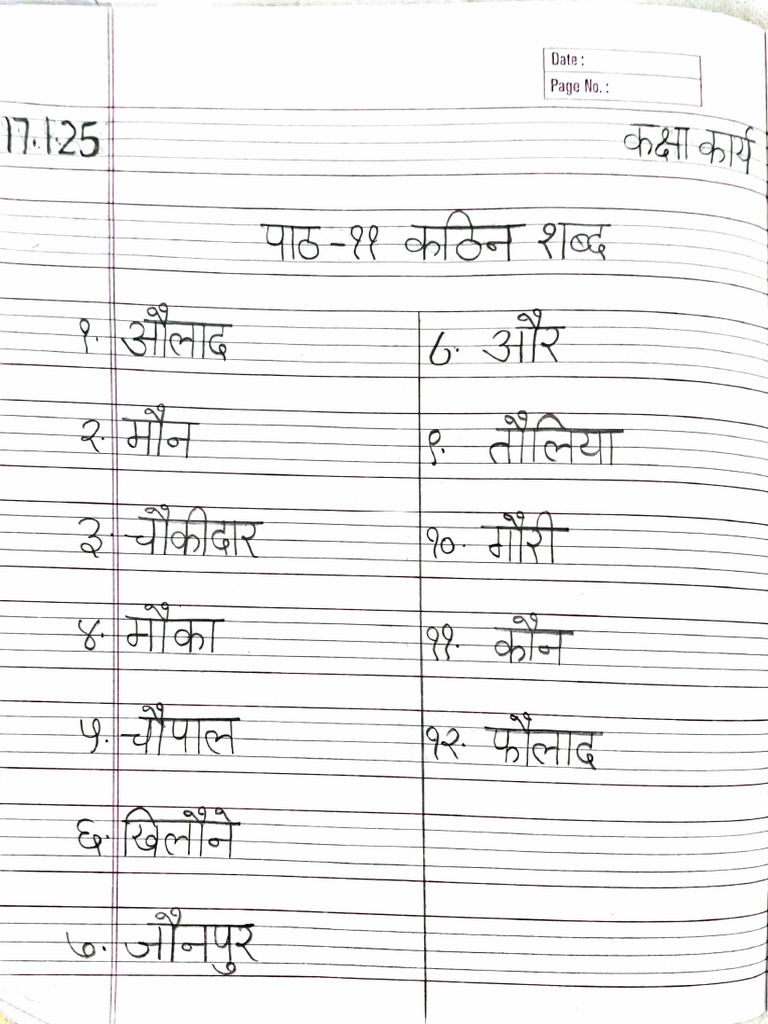 Date :
Page No. :
17.1.25
कक्षा कार्य
पाठ -११ कठिन शब्द
१. औलाद
२. मौन
३. चौकीदार
४. मौका
५. चौपाल
६. खिलौने
७. जौनपुर
८. और
९. तौलिया
१०. गौरी
११. कौन
१२. फौलाद